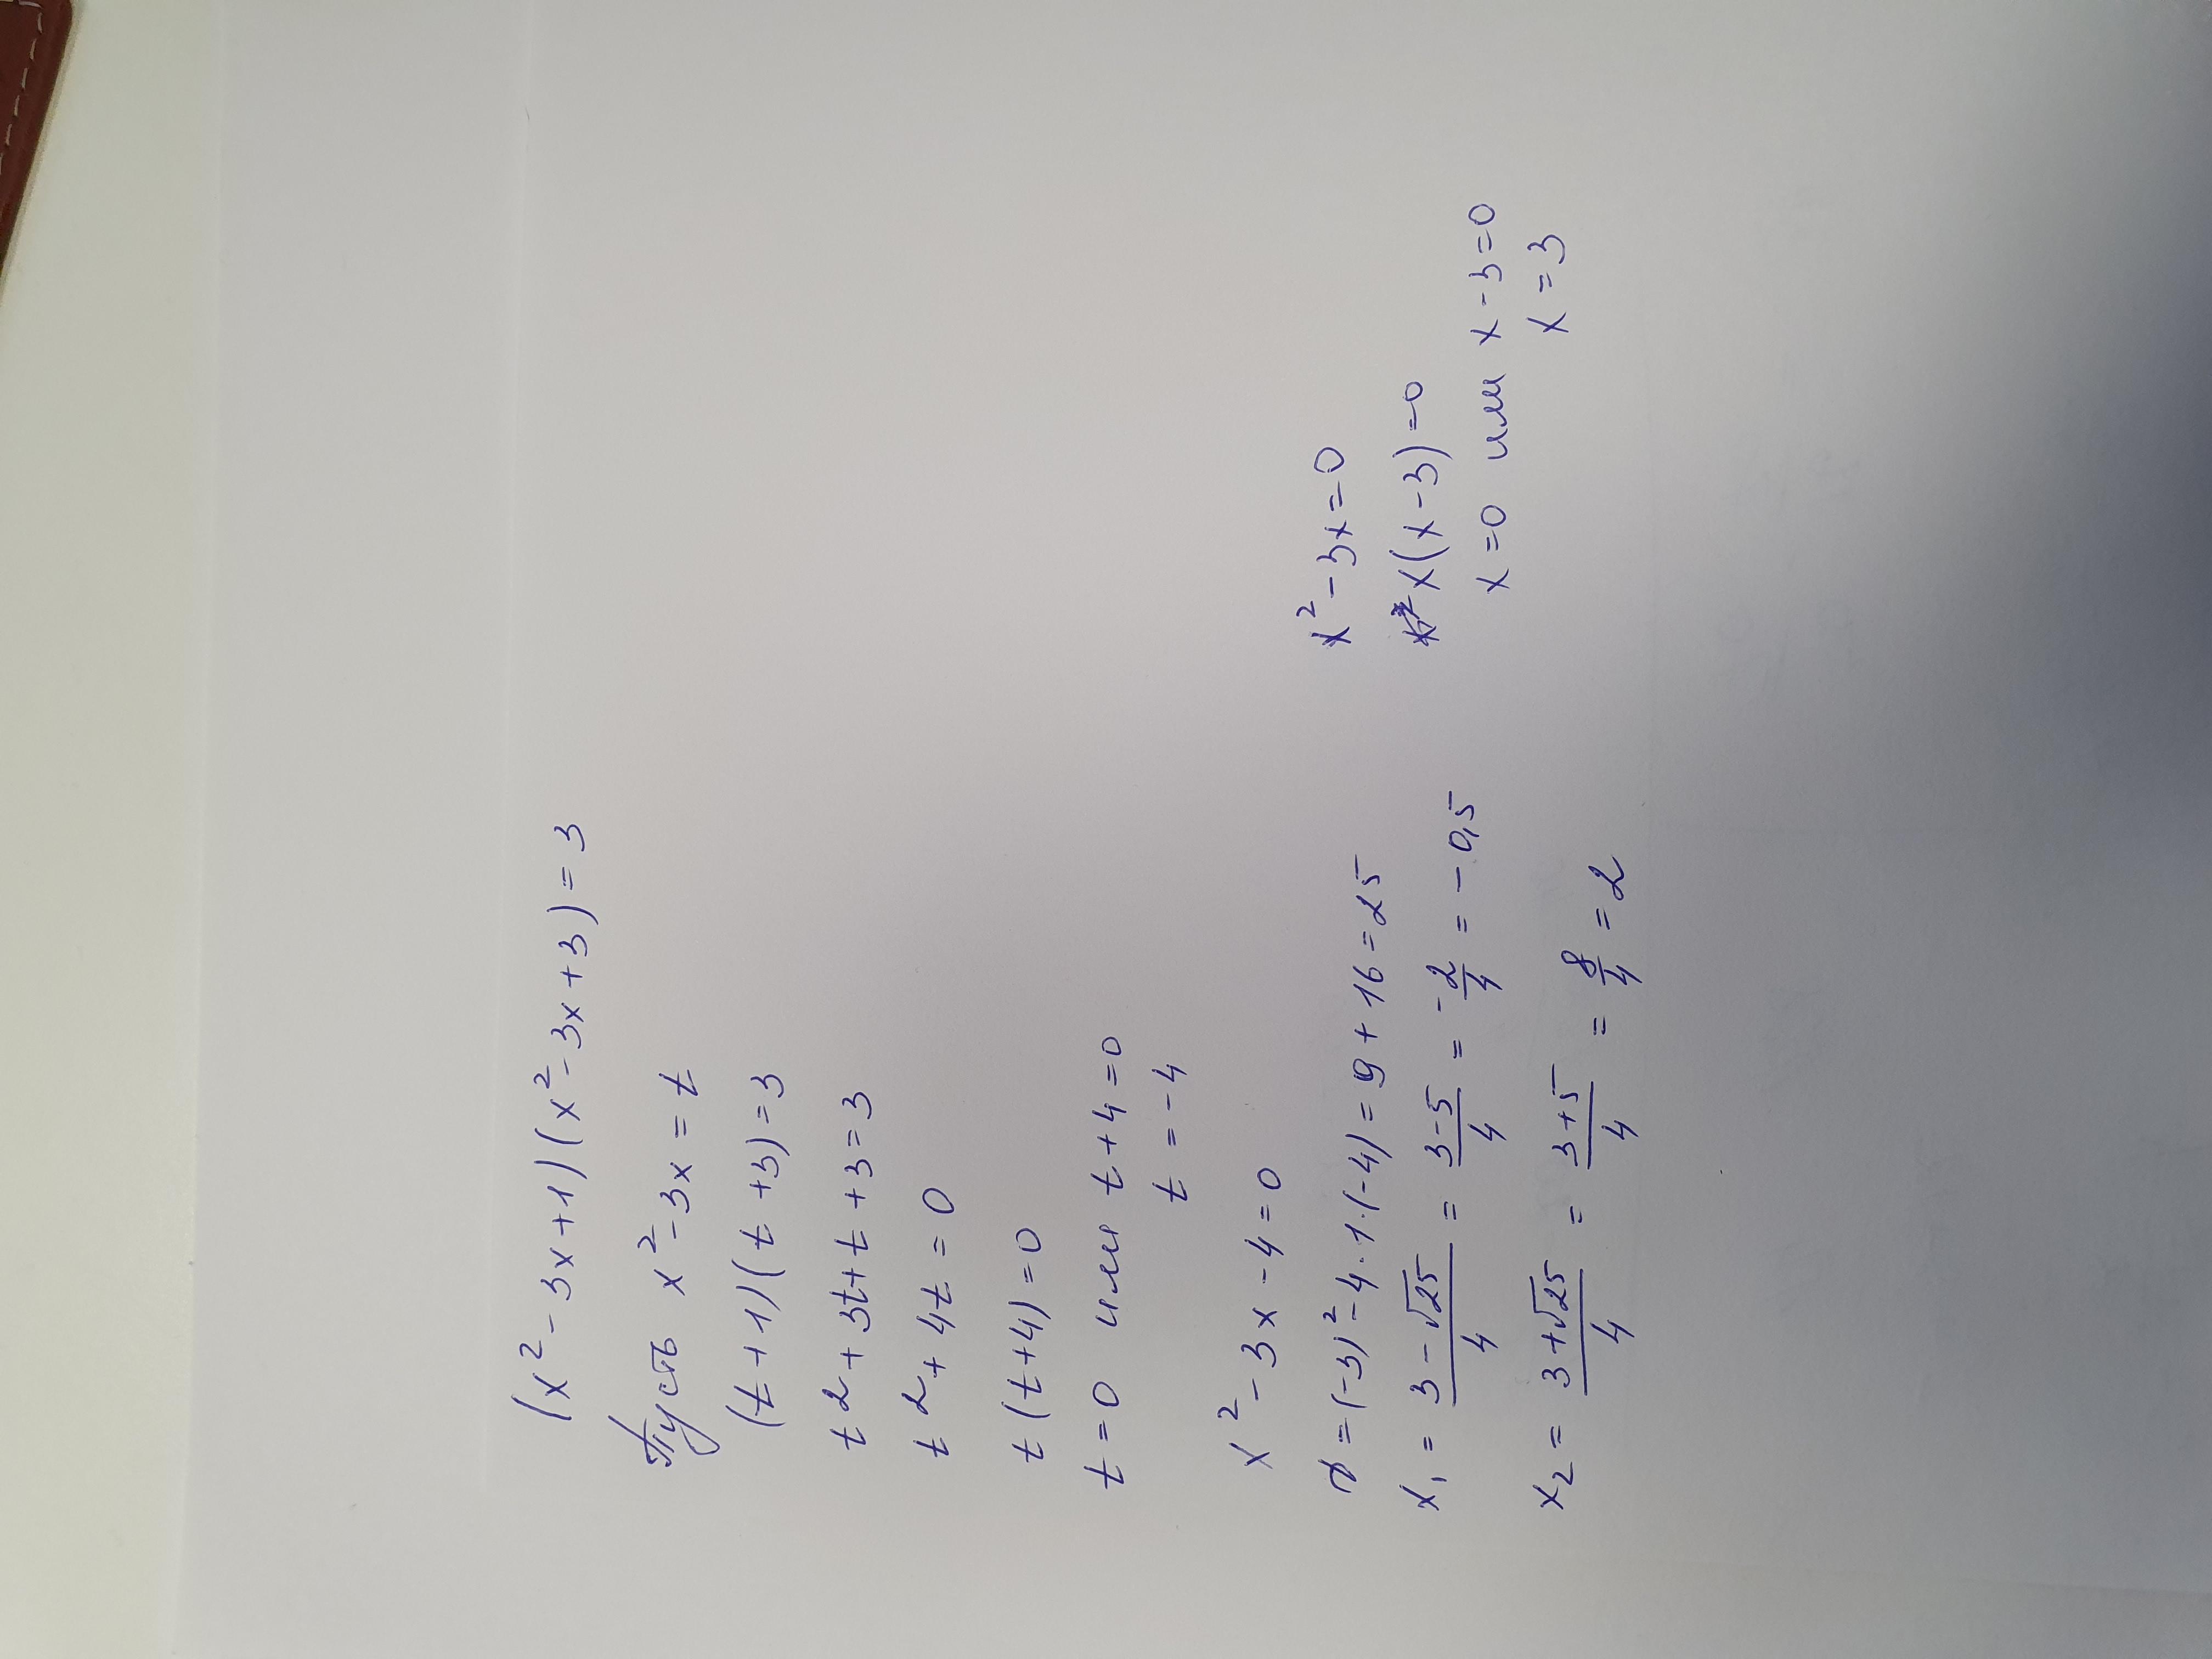 (x² - 3x + 1)(x² - 3x + 3) = 3
Пусть x² - 3x = t
(t + 1)(t + 3) = 3
t² + 3t + t + 3 = 3
t² + 4t = 0
t(t + 4) = 0
t = 0 или t + 4 = 0
t = -4
x² - 3x - 4 = 0
D = (-3)² - 4 · 1 · (-4) = 9 + 16 = 25
x₁ = (3 - √25)/4 = (3 - 5)/4 = -2/4 = -0,5
x₂ = (3 + √25)/4 = (3 + 5)/4 = 8/4 = 2
x² - 3x = 0
x(x - 3) = 0
x = 0 или x - 3 = 0
x = 3